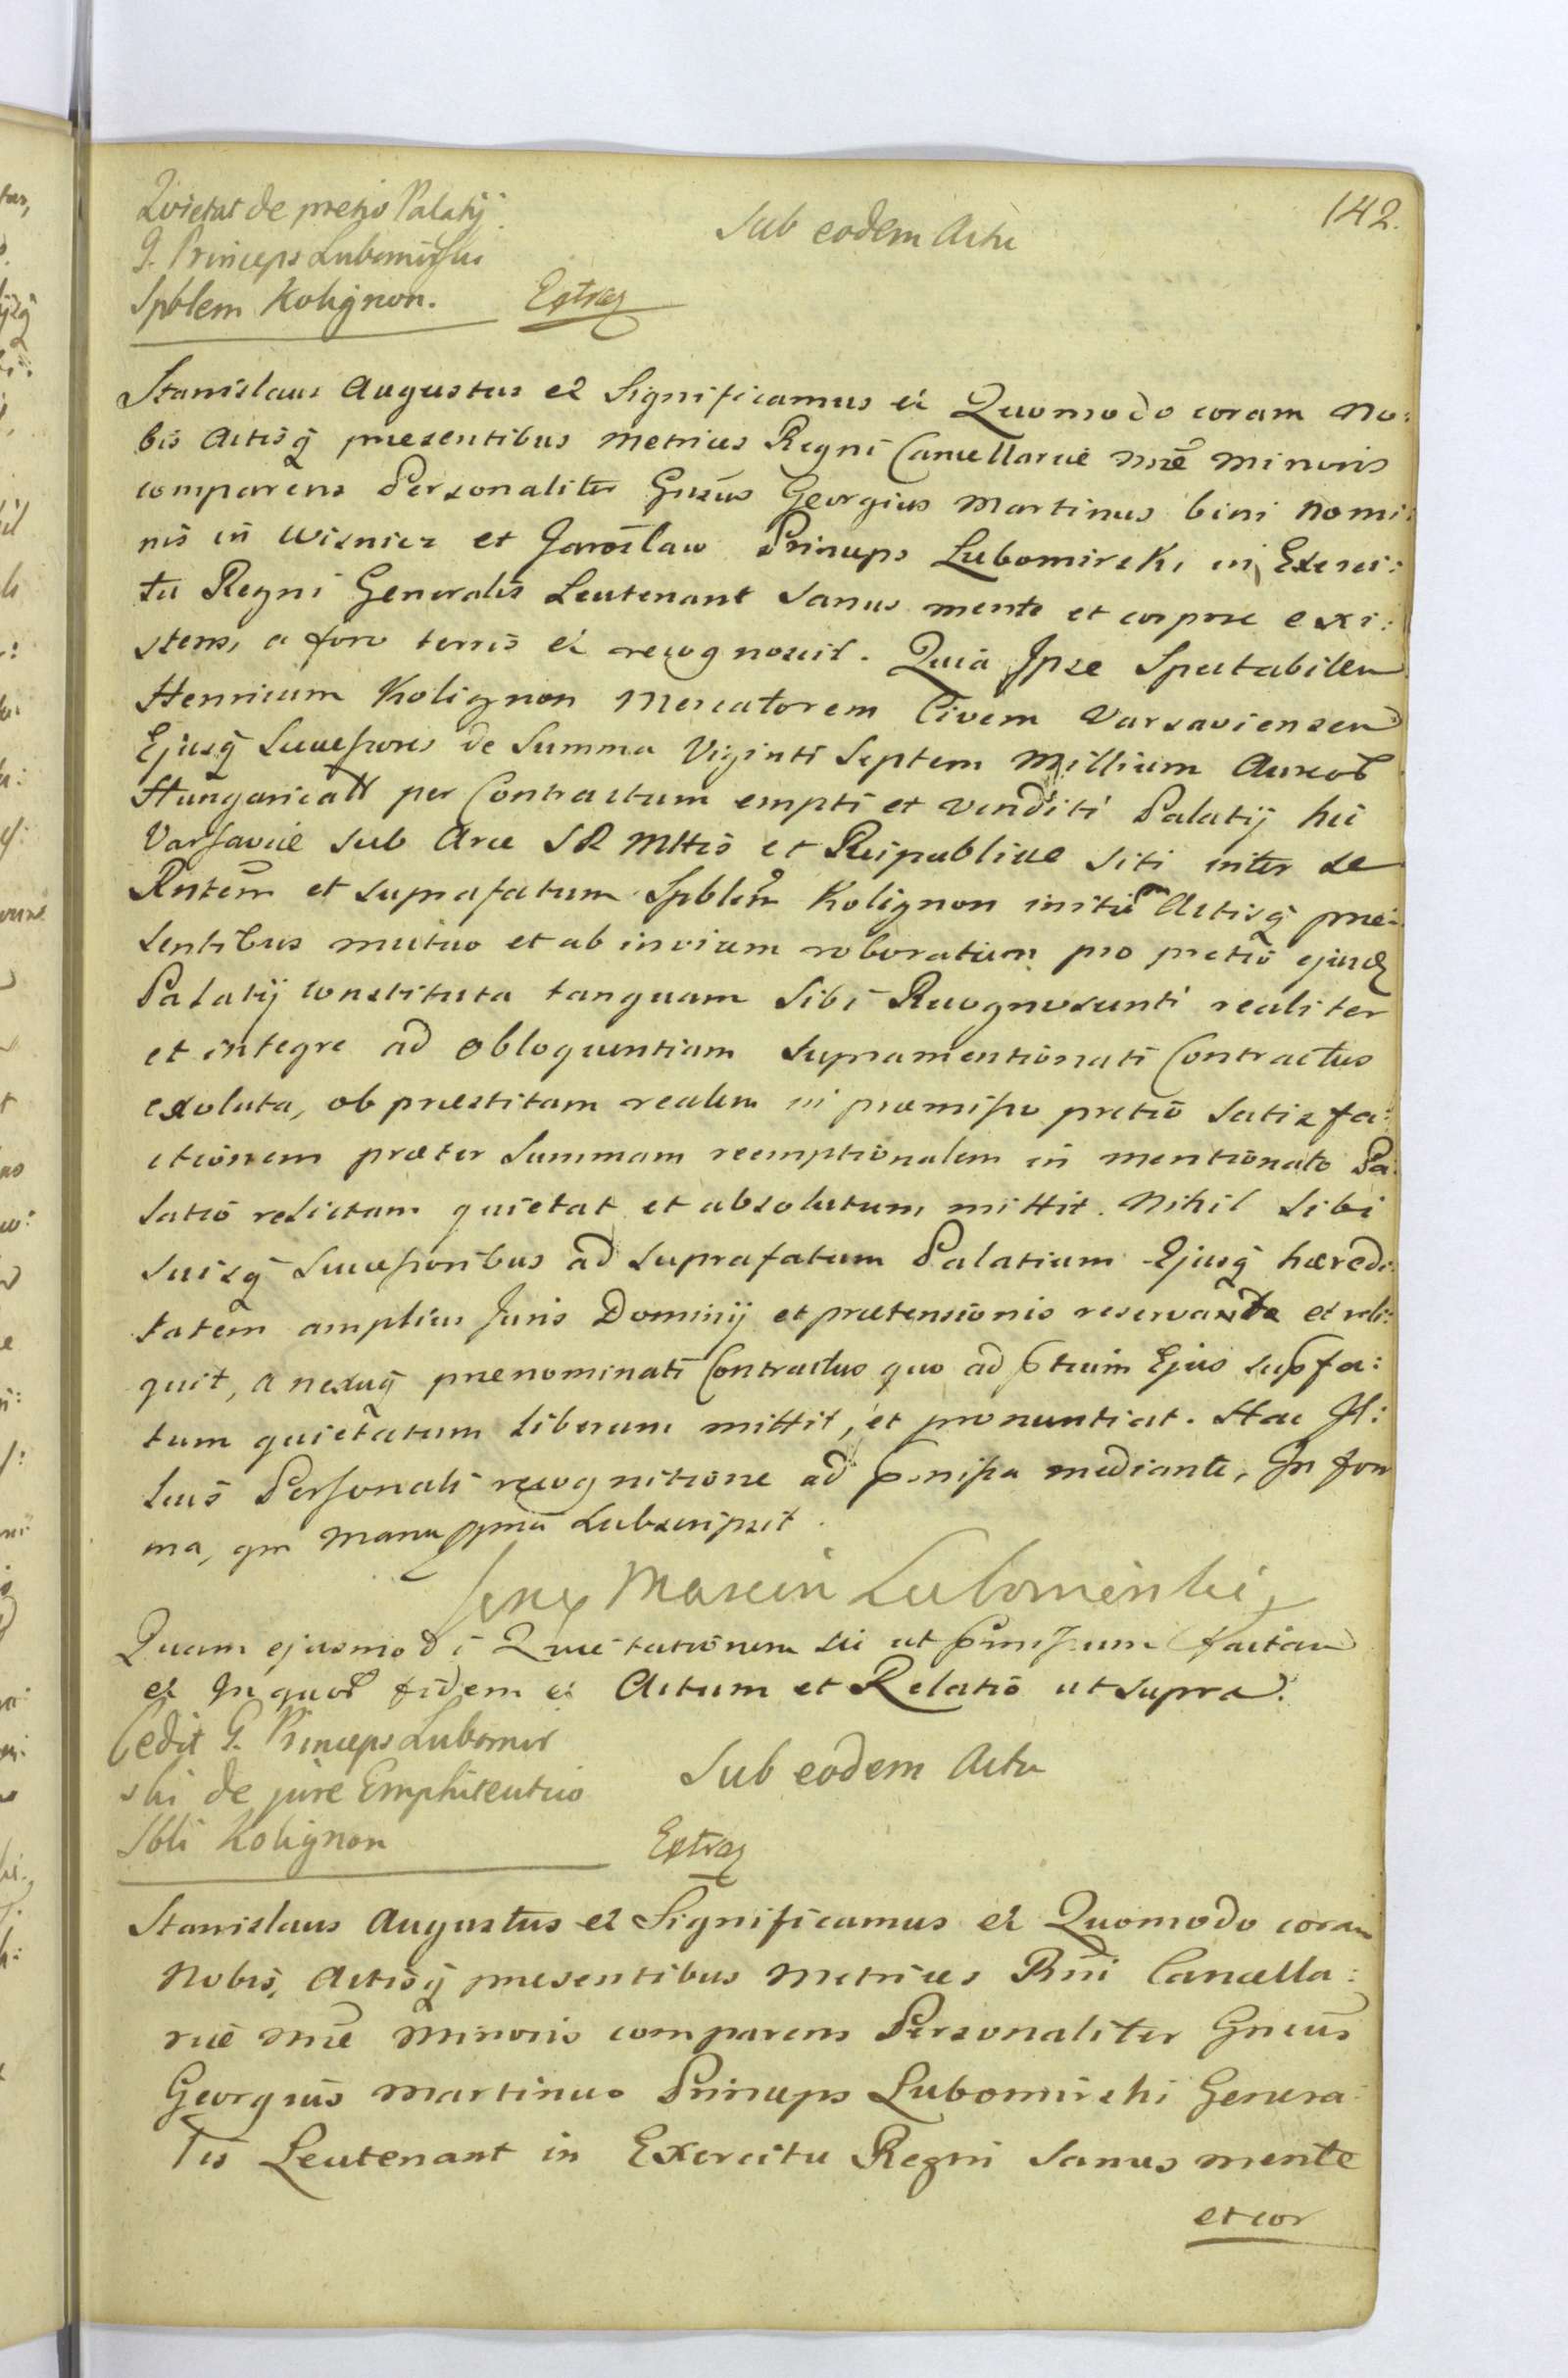 142.
Quietat de pretio Palatij
G. Princeps Lubomirski
Spblem Kolignon. Extrag
Sub eodem Actu
Stanislaus Augustus et Significamus et Quomodo coram No:
bis Actisq̃ praesentibus Metrices Regni Cancellariae nrãe Minoris
comparens Personaliter Gnsũs Georgius Martinus bini nomi:
nis in Wisnicz et Jaroslaw Princeps Lubomirski in Exerci:
tu Regni Generalis Leutenant sanus mente et corpore exi:
stens, a foro terris et recognovit. Quia Ipse Spectabilem
Henricum Kolignon Mercatorem Civem Varsaviensem
Ejusq̃ Successores de Summa Viginti Septem Millium Aureor
Hungaricall per Contractum empti et venditi Palatij hic
Varsaviae sub Arce SR Mttis et Reipublicae siti inter se
Rntem̃ et suprafatum Spblem̃ Kolignon initum Actisq̃ prae:
sentibus mutuo et ab invicem roboratum pro pretio ejusd
Palatij constituta tanquam sibi Recognoscenti realiter
et integre ad obloquentiam supramentionati Contractus
exoluta, ob praestitam realem in praemisso pretio satisfa:
ctionem praeter Summam reemptionalem in mentionato Pa
latio relictam quietat et absolutum mittit. Nihil sibi
suisq̃ Successoribus ad suprafatum Palatium Ejusq̃ haeredi:
tatem amplius Juris Dominij et praetensionis reservando et reli:
quit, a nexuq̃ praenominati Contractus quo ad ptum̃ Ejus supfa:
tum quietatum liberum mittit, et pronuntiat. Hac Il:
lius Personali recognitione ad pmissa mediante, In for
ma, qm Manu ppria Subscripsit.
Jerzy Marcin Lubomirski
Quam ejusmodi Quietationem sic ut pmissum factam
et In quor fidem et Actum et Relatio ut supra.
Cedit G. Princeps Lubomir
ski de jure Emphiteutico
Sbli Kolignon Extrag
Sub eodem Actu
Stanislaus Augustus et Significamus et Quomodo coram
Nobis, Actisq̃ praesentibus Metrices Rñi Cancella:
riae nrãe Minoris comparens Personaliter Gnsũs
Georgius Martinus Princeps Lubomirski Genera:
lis Leutenant in Exercitu Regni sanus mente
et cor